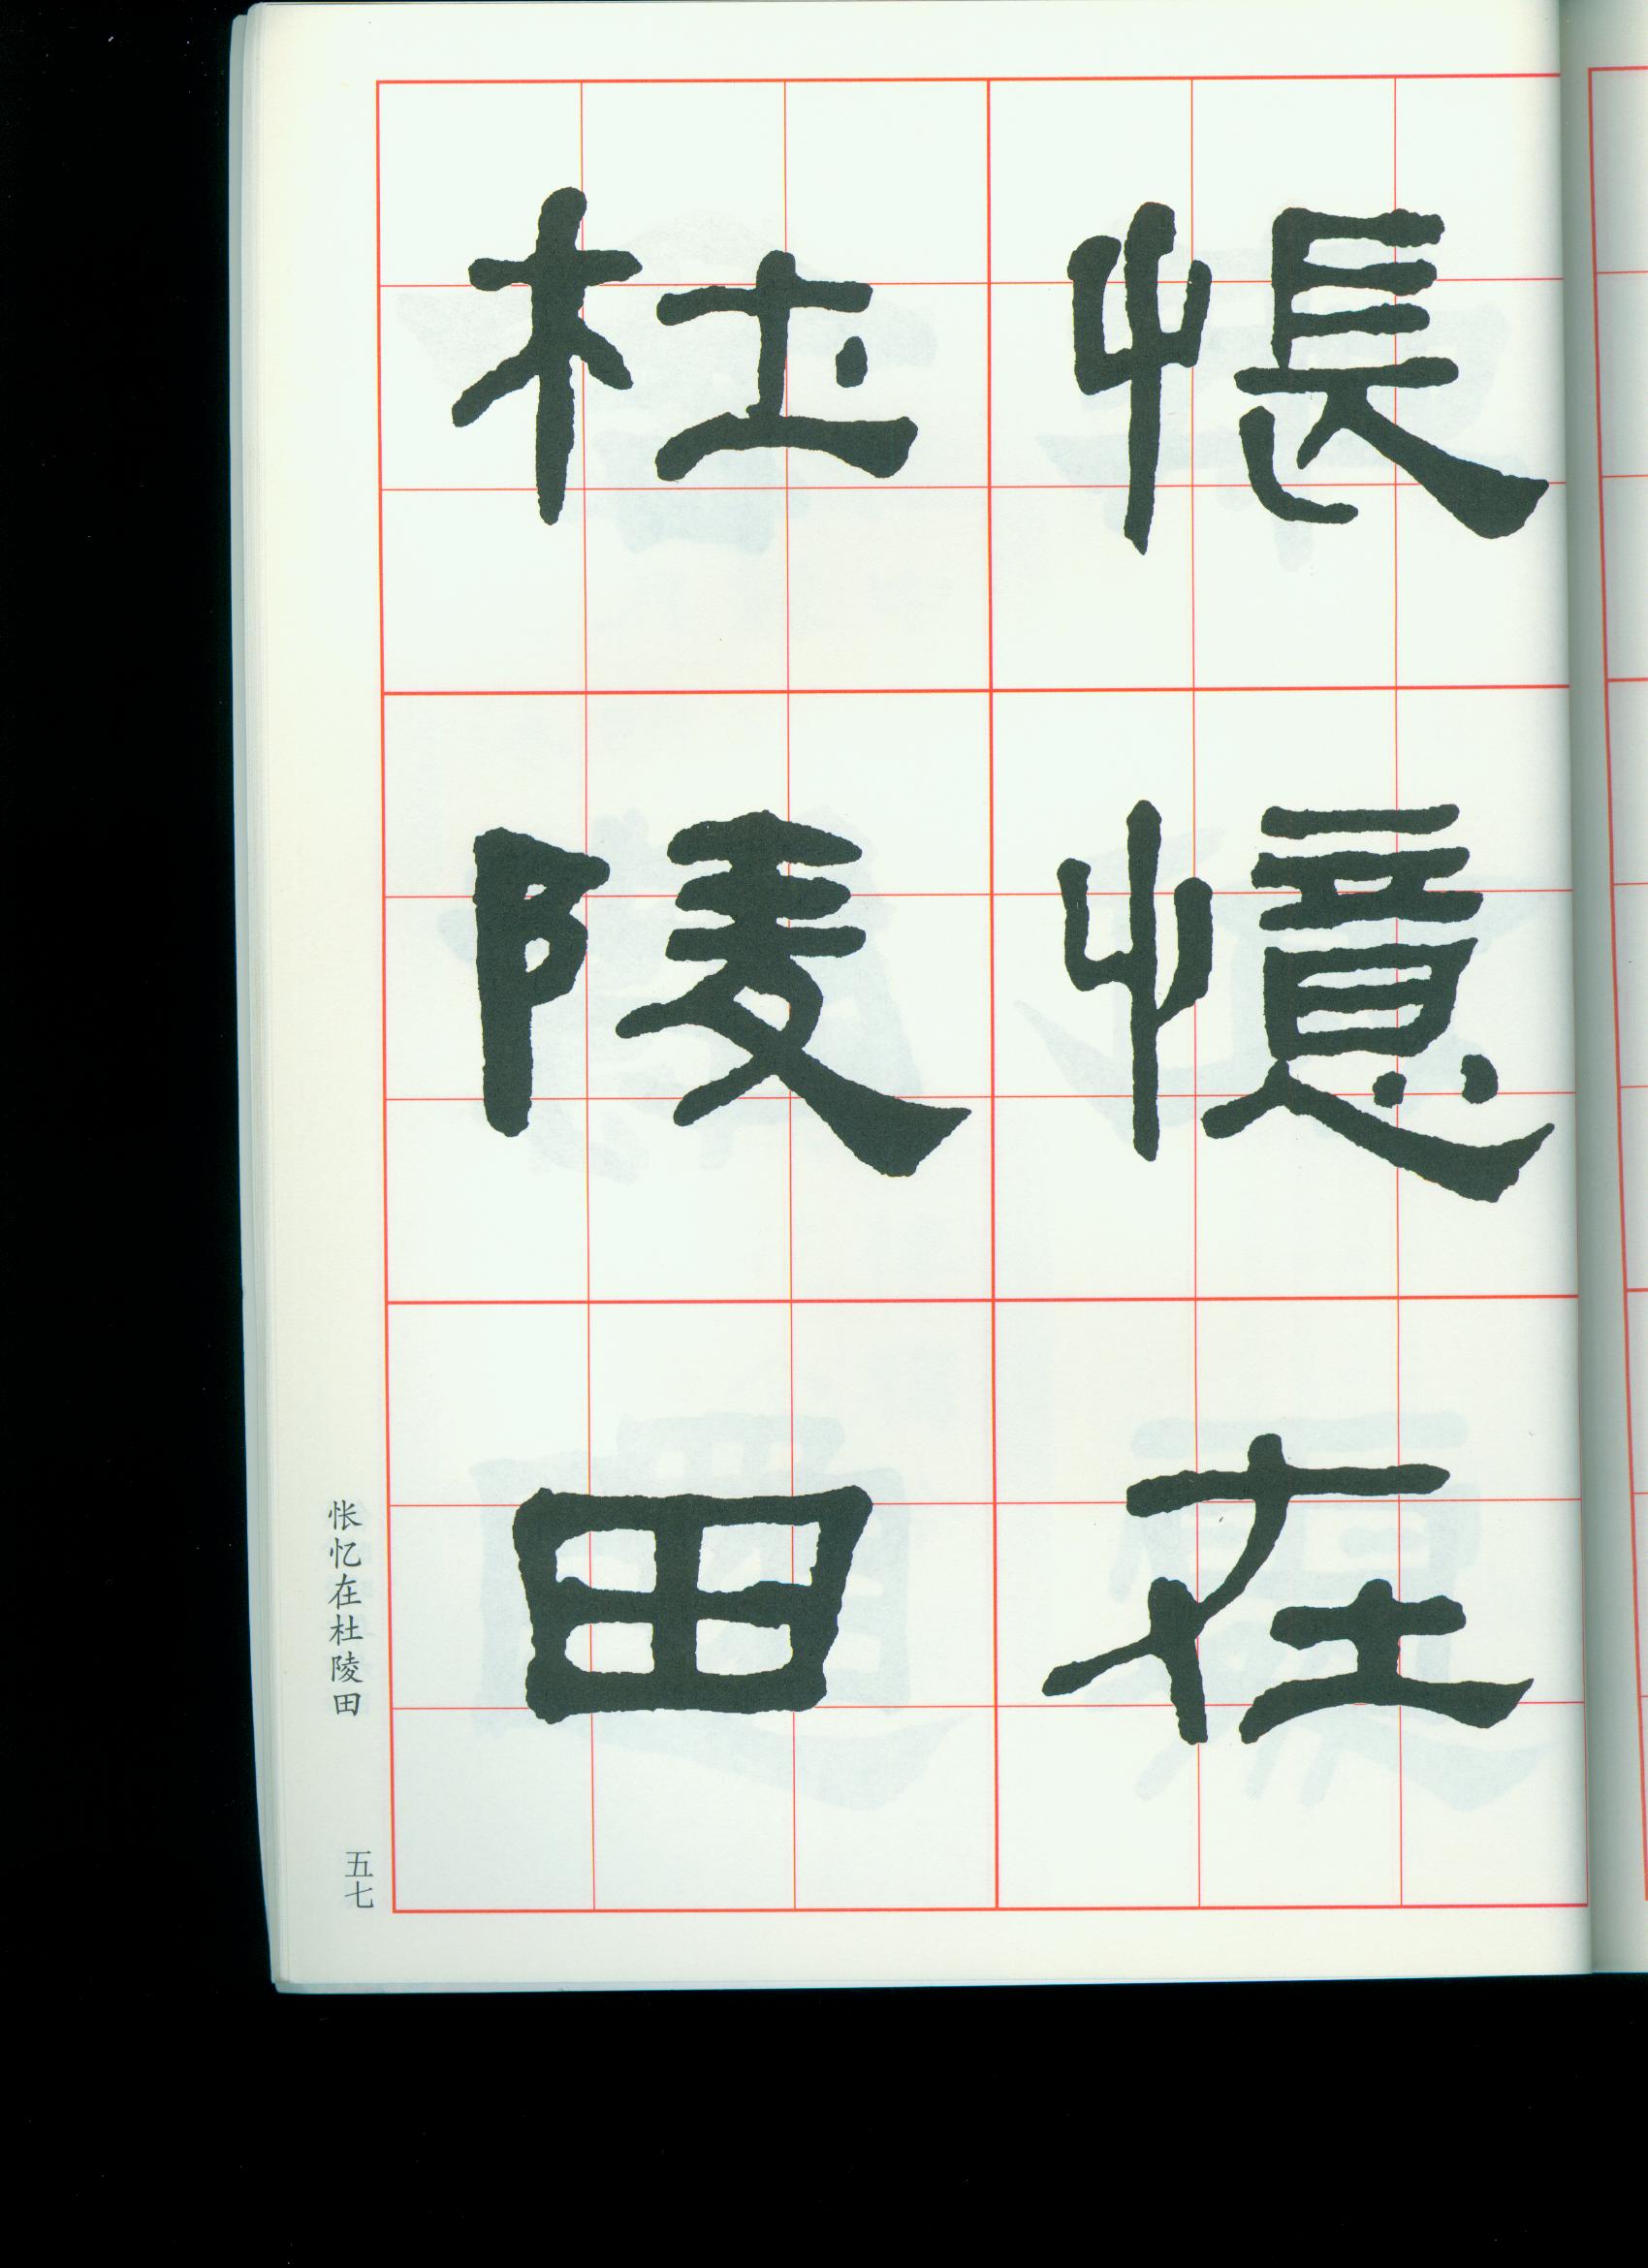 悵憶在
杜陵田
怅忆在杜陵田
五七